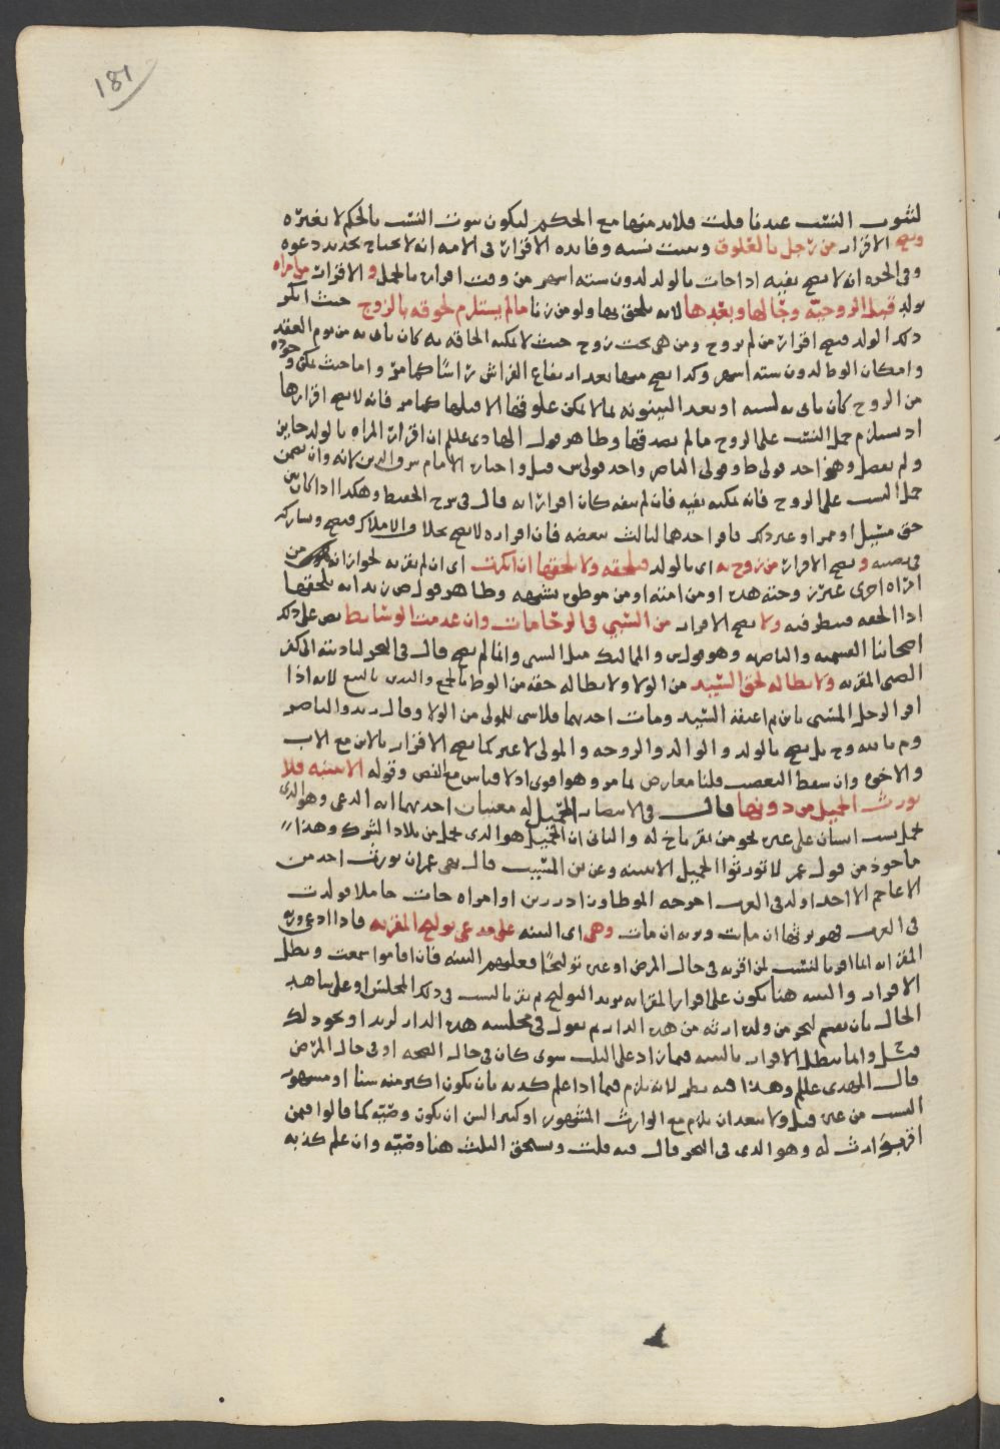 181
لثبوت النسب عندنا قلت فلابد منها مع الحكم ليكون ثبوت النسب بالحكم لا بغيره
ويصح الاقرار من رجل بالعلوق ويثبت نسبه وفايده الاقرار في الامه انه لا يحتاج تجديد دعوه
وفي الحره انه لا يصح نفيه اذا جات بالولد لدون سته اشهر من وقت اقراره بالحمل و الاقرار من امراه
بولد قبل الزوجيه وحالها وبعدها لانه يلحق بها ولو من زنا مالم يستلزم لحوقه بالزوج حيث انكر
ذلك الولد فيصح اقرار من لم تزوج ومن هي تحت زوج حيث لا يمكنه الحاقه به كان ياتي به من يوم العقد
وامكان الوطا لدون سته اشهر وكذا يصح منها بعد ارتفاع الفراش راسا كما مر واما حيث يمكن
من الزوج كان ياتي به لسته او بعد البينونه لما لا يمكن علوقها الا قبلها كما مر فانه لا يصح اقرارها
اذ يستلزم حمل النسب على الزوج مالم يصدقها وظاهر قول الهادي عللم ان اقرار المراه بالولد جايز
ولم يفصل وهو احد قولي ط وقولي الناصر واحد قولي ش قيل واختاره الامام شرف الدين لانه وان تضمن
حمل النسب على الزوج فانه يمكنه نفيه فان لم ينفه كان اقرارا به قال في شرح الحفيظ وهكذا اذا كان بين
حق مسيل او ممر او غير ذلك فاقر احدهما لثالث ببعضه فان اقراره لا يصح بخلاف الاملاك فيصح ويشاركه
في نصيبه و يصح الاقرار من زوج به اي بالولد فيلحقه ولا يلحقها ان انكرت اي ان لم تقر به لجواز انه من
امراه اخرى غير زوجته هذه او من امته او من موطوه بشبهه وظاهر قول ص زيد انه يلحقها
اذا الحقه فينظر فيه ولا يصح الاقرار من السبي في الرحامات وان عدمت الوسايط نص على ذلك
اصحابنا القسميه والناصريه وهو قول ش والمماليك مثل السبي وانما لم يصح قال في البحر لتاديته الى كفر
الصبي المقر به ولا بطاله لحق السيد من الولا ولا بطاله حقه من الوطا بالحج والبدن بالبيع لانه اذا
اقر الرجل المسبي بابن ثم اعتقه السيد ومات احدهما فلا شي للمولى من الولا وقال زيد والناصر
وم بالله وح بل يصح بالولد والوالد والزوجه والمولى لا غير كما يصح الاقرار بالابن مع الاب
والاخوه وان سقط التعصيب قلنا معارض بما مر وهو اقوى اذ لا قياس مع النص وقوله الا ببينه فلا
يورث الحميل من دونها قال في الانتصار الحميل له معنيان احدهما انه الدعي وهو الذي
يحمل نسب انسان على غيره نحو من يقر باخ له والثاني ان الحميل هو الذي يحمل من بلاد الشرك وهذا
ماخوذ من قول عمر لا تورثوا الحميل الا ببينه وعن بن المسيب قال ابى عمر ان يورث احد من
الاعاجم الا احد اولد في العرب اخرجه الموطا وزاد رزين او امراه جات حاملا فولدت
في العرب فهو يرثها ان ماتت وترثه ان مات وهي اي البينه على مدعي توليج المقر به فاذا ادعى ورثه
المقر انه انما اقر بالنسب لمن اقر به في حال المرض او غيره توليجا فعليهم البينه فان اقاموا سمعت وبطل
الاقرار والبينه هنا تكون على اقرار المقر انه يريد التوليج ثم يقر بالنسب في ذلك المجلس او على شاهد
الحال بان يقسم ليحرمن ولده ارثه من هذه الدار ثم يقول في مجلسه هذه الدار لزيد او نحو ذلك
قيل وانما يبطل الاقرار بالبينه فيما زاد على الثلث سوى كان في حال الصحه او في حال المرض
قال المهدي عللم وهذا فيه نظر لانه يلزم فيما اذا علم كذبه بان يكون اكبر منه سنا او مشهور
النسب من غيره قيل ولا يبعد ان يلزم مع الوارث المشهور او كبر السن ان يكون وصيه كما قالوا فيمن
اقر بوارث له وهو الذي في البحر قال فيه قلت ويستحق الثلث هنا وصيه وان علم كذبه